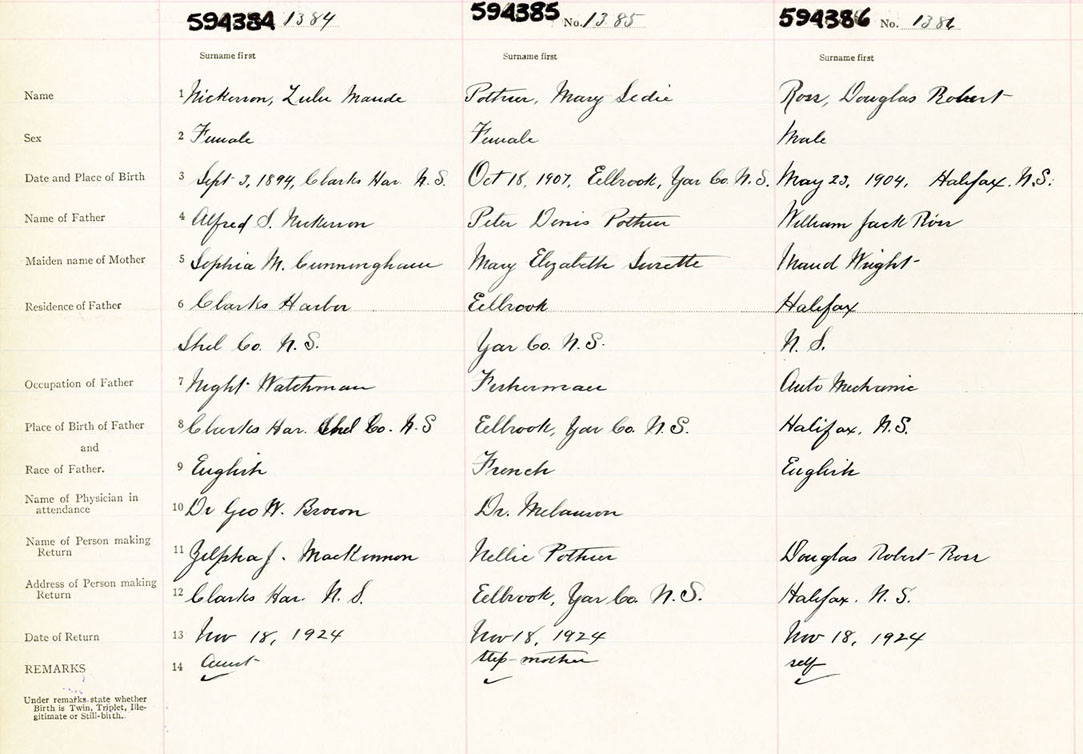 594384 1384 594385 No. 1385 594386 No. 1386
Surname first Surname first Surname first
Name 1 Nickerson, Lulu Maude Pothier, Mary Sedie Ross, Douglas Robert
Sex 2 Female Female Male
Date and Place of Birth 3 Sept 3, 1894, Clarks Har. N.S. Oct 18, 1907, Eelbrook, Yar Co. N.S. May 23, 1904, Halifax. N.S.
Name of Father 4 Alfred S. Nickerson Peter Denis Pothier William Jack Ross
Maiden name of Mother 5 Sophia M. Cunningham Mary Elizabeth Surette Maud Wright
Residence of Father 6 Clarks Harbor Eelbrook Halifax
Shel Co. N.S. Yar Co. N.S. N.S.
Occupation of Father 7 Night Watchman Fisherman Auto Mechanic
Place of Birth of Father 8 Clarks Har. Shel Co. N.S Eelbrook, Yar Co. N.S. Halifax, N.S.
and
Race of Father. 9 English French English
Name of Physician in
attendance 10 Dr Geo W. Brown Dr. Melanson
Name of Person making
Return 11 Zilpha J. MacKinnon Nellie Pothier Douglas Robert Ross
Address of Person making
Return 12 Clarks Har. N.S. Eelbrook, Yar Co. N.S. Halifax. N.S.
Date of Return 13 Nov 18, 1924 Nov 18, 1924 Nov 18, 1924
REMARKS 14 Aunt step-mother self
Under remarks state whether
Birth is Twin, Triplet, Ille-
gitimate or Still-birth.